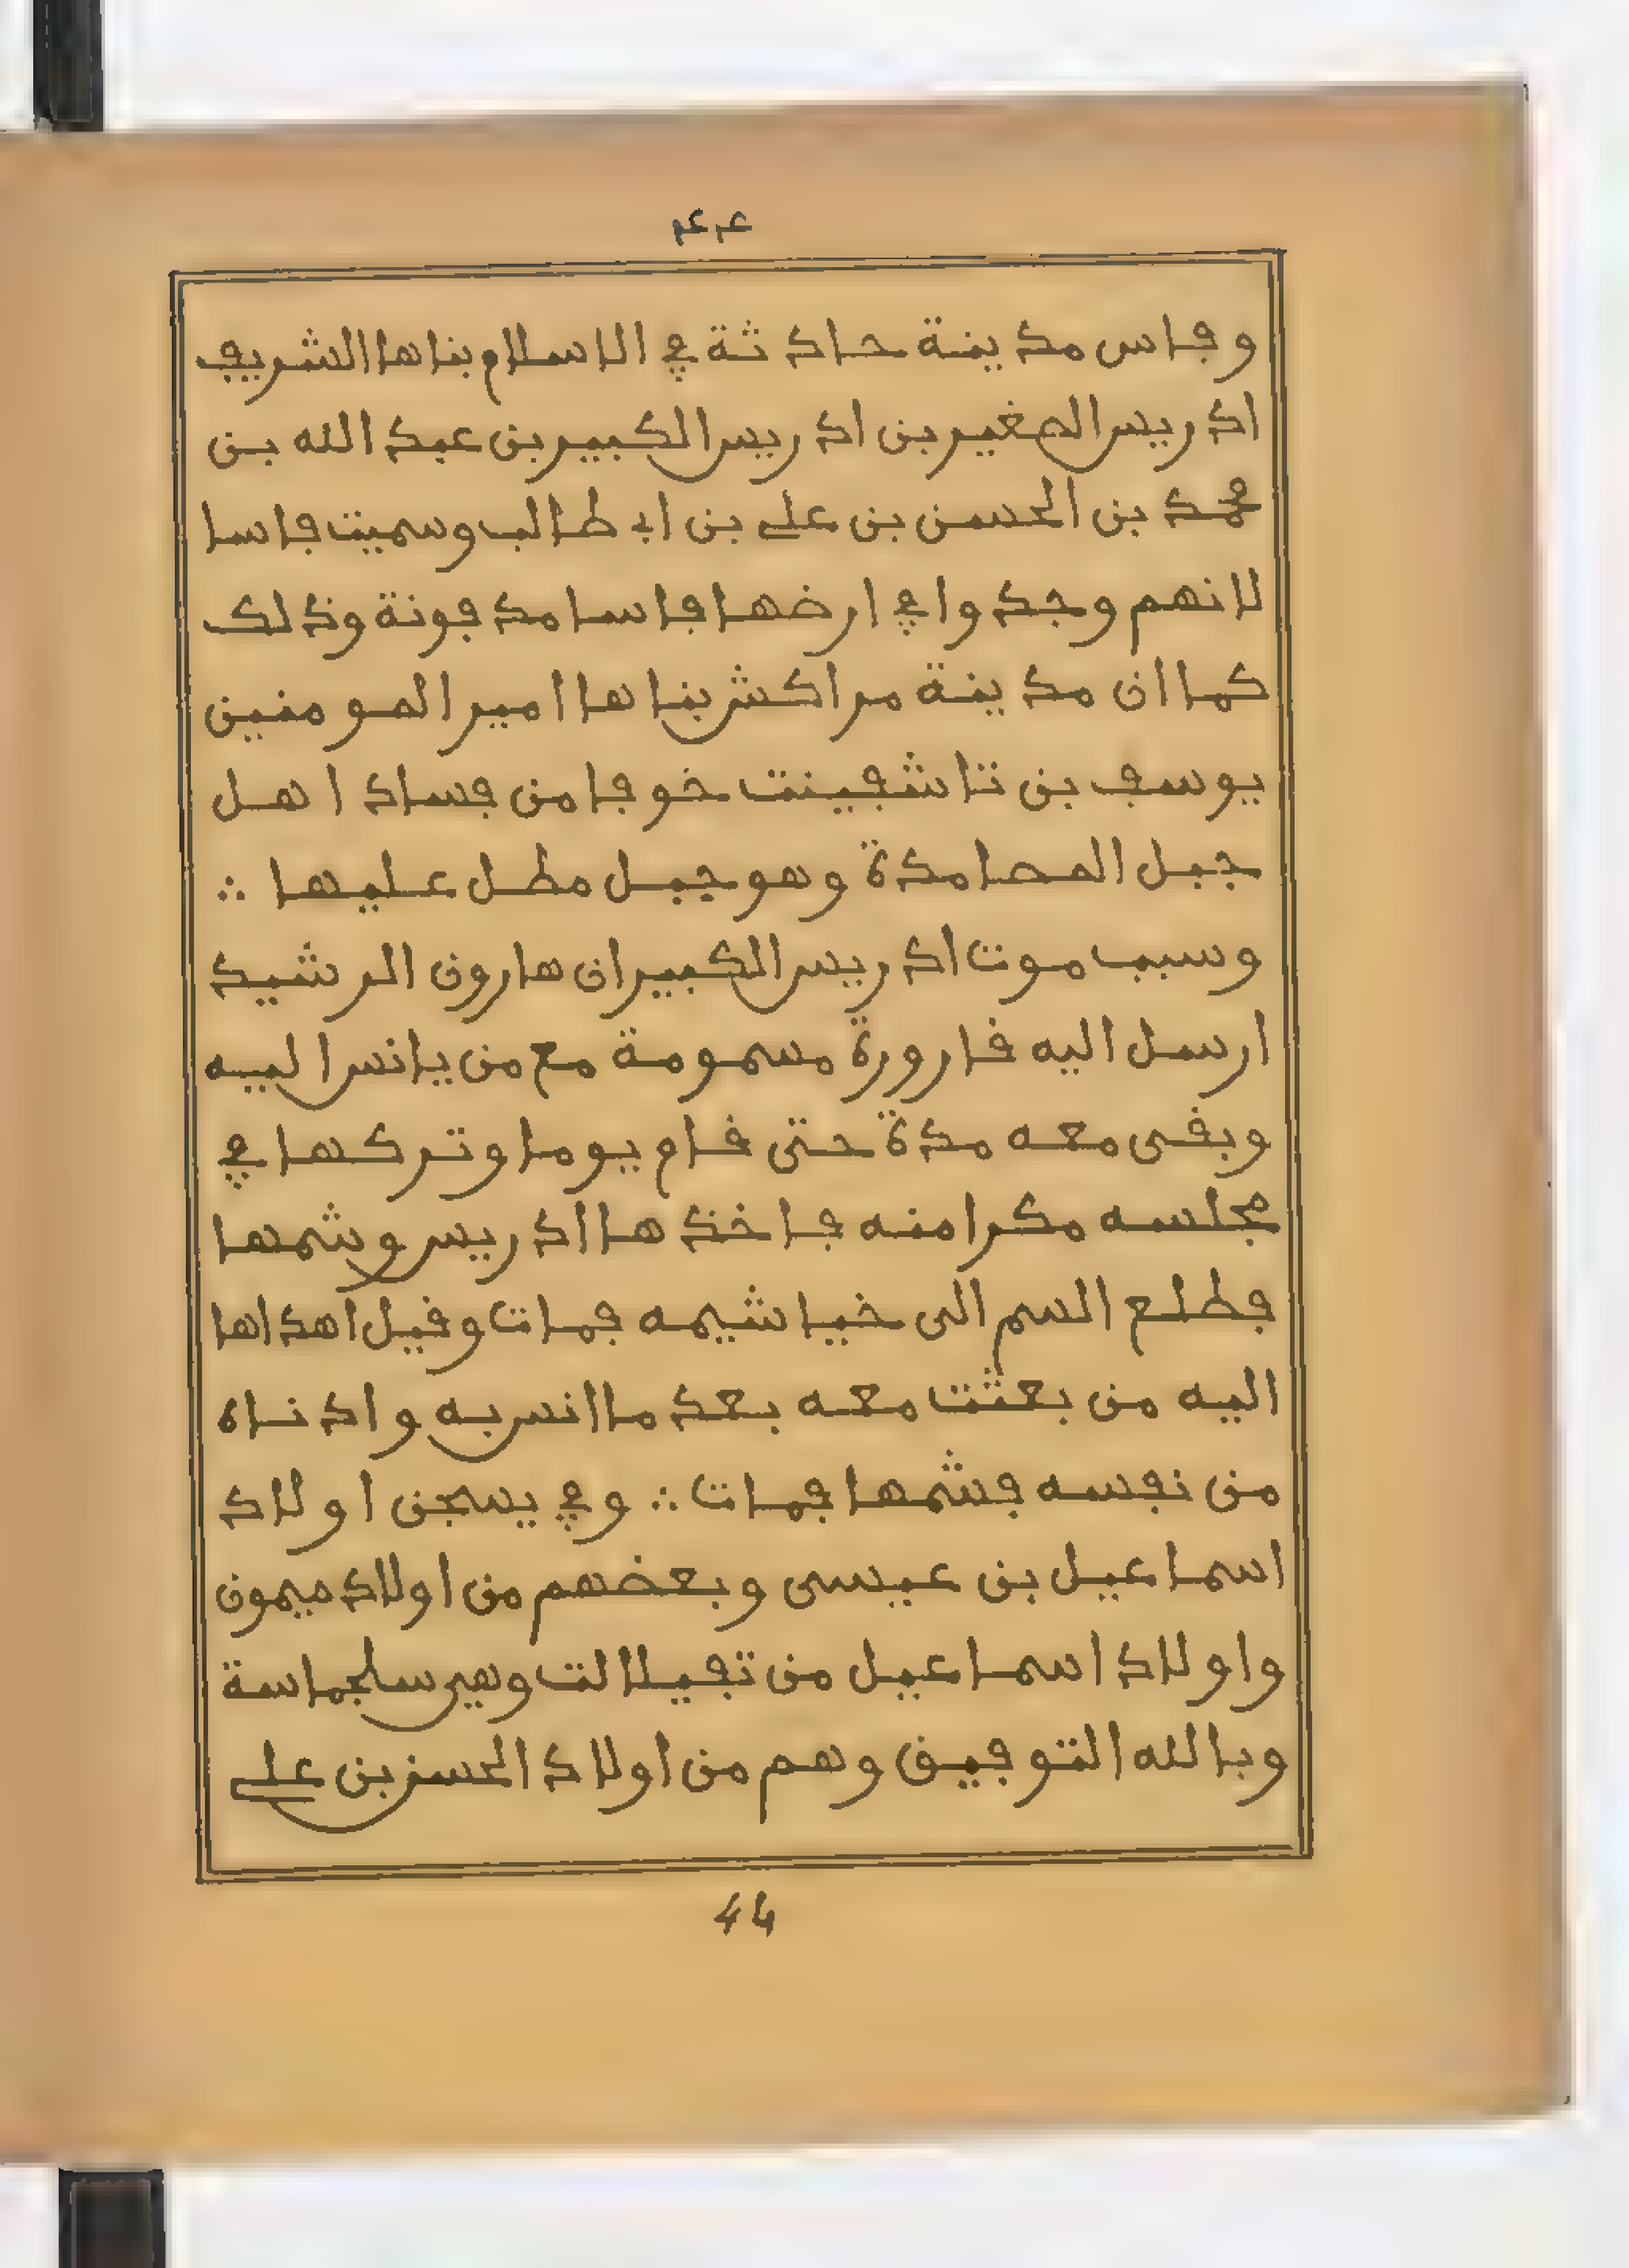 ٤٤
وفاس مدينة حادثة في الاسلام بناها الشريف
ادريس الصغير بن ادريس الكبير بن عبد الله بن
محمد بن الحسن بن علي بن ابي طالب وسميت فاسا
لانهم وجدوا في ارضها فاسا مدفونة وذلك
كما ان مدينة مراكش بناها امير المومنين
يوسف بن تاشفينت خوفا من فساد اهل
جبل المصامدة وهو جبل مطل عليها ∴
وسبب موت ادريس الكبير ان هارون الرشيد
ارسل اليه قارورة مسمومة مع من يانس اليه
وبقى معه مدة حتى قام يوما وتركها في
مجلسه مكرا منه فاخذها ادريس وشمها
فطلع السم الى خياشيمه فمات وقيل اهداها
اليه من بعثت معه بعد ما انس به وادناه
من نفسه فشمها فمات ∴ وفي يسجن اولاد
اسماعيل بن عيسى وبعضهم من اولاد ميمون
واولاد اسماعيل من تفيلالت وهي سلجماسة
وبالله التوفيق وهم من اولاد الحسن بن علي
44